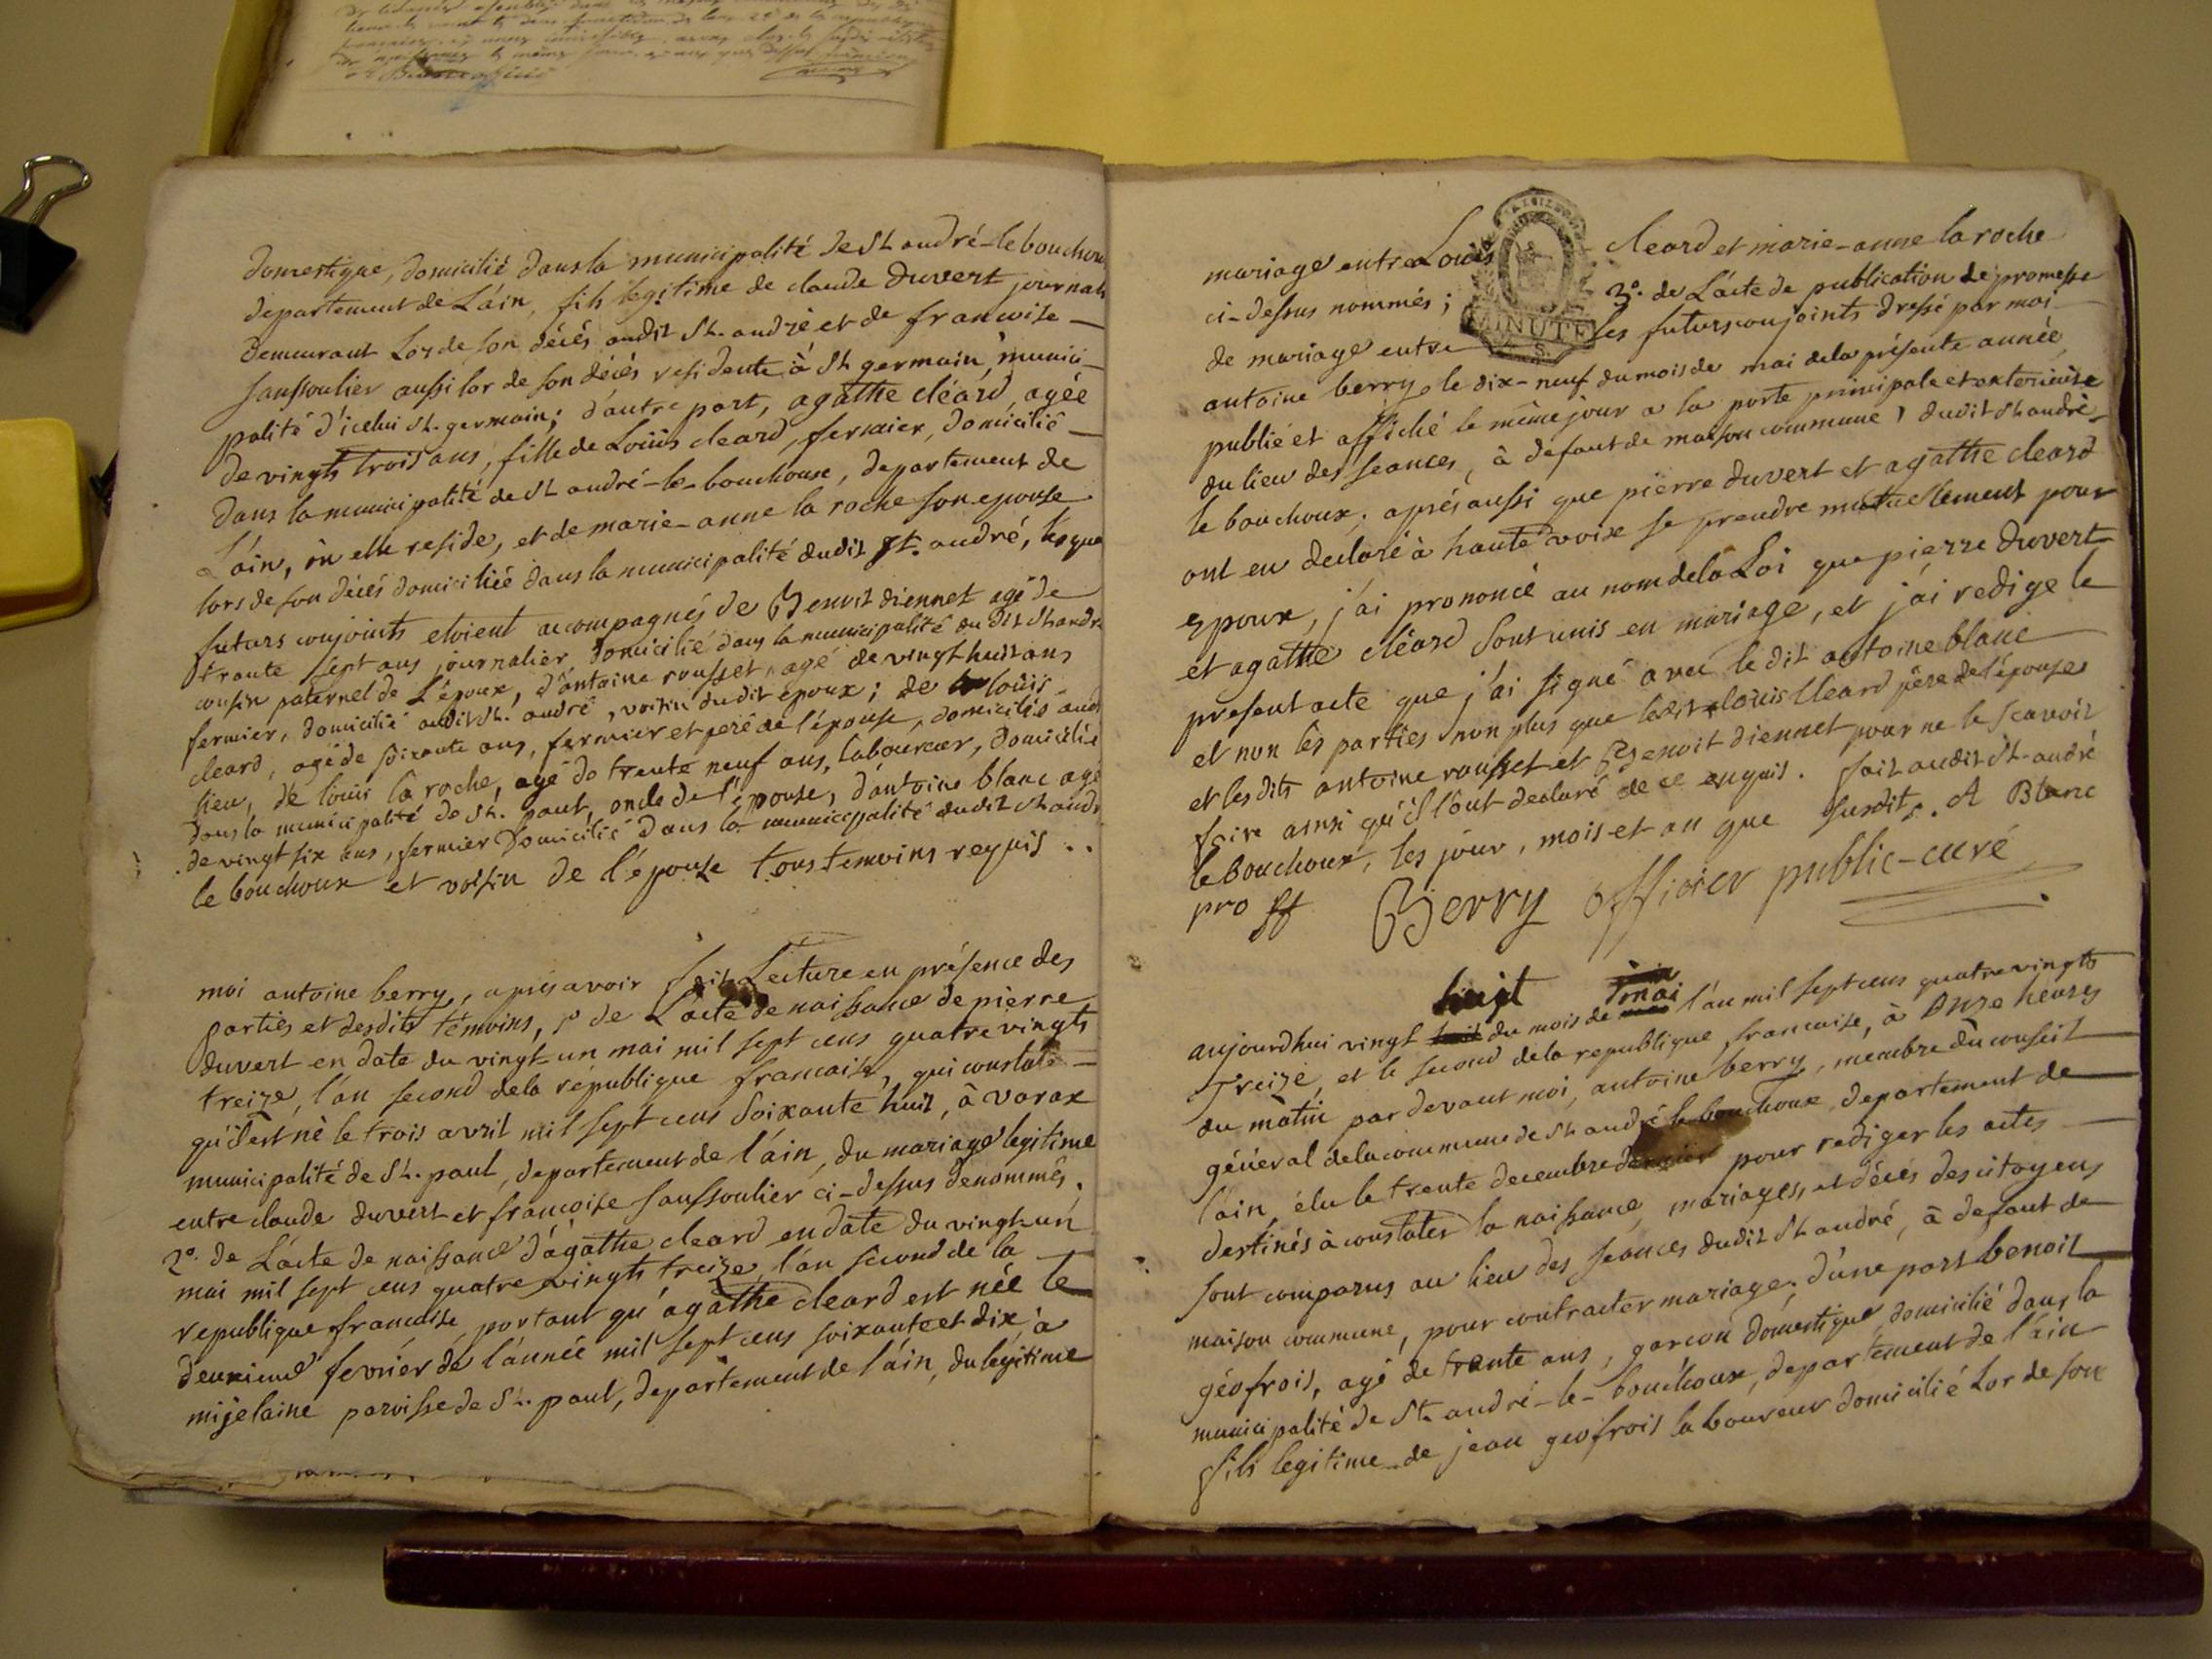 domestique, domicilié dans la municipalité de St andré-le bouchoux
departement de L'áin, fils legitime de claude duvert journali
demeurant Lors de son décés audit St. andré et de francoise
saussoulier aussi lor de son décés residente à St germain, munici-
palité d'icelui St. germain; d'autre part, agathe cléard, agée
de vingts trois ans, fille de Loüis cleard, fermier, domicilié
dans la municipalité de St andré-le-bouchoux, departement de
L'ain, ou elle reside, et de marie-anne la roche son epouse
lors de son décés domiciliée dans la municipalité dudit St. andré, lesque
futurs conjoints etoient accompagnés de Benoit diennet agé de
trante sept ans journalier, domicilié dans la municipalité du dit St andré
cousin paternel de L'époux, d'antoine rousset, agé de vingt huit ans
fermier, domicilié audit St. andré, voisin dudit epoux; de loüis
cleard, agé de soixante ans, fermier et pere de l'épouse, domicilié aud
lieu, de louis la roche, agé de trente neuf ans, laboureur, domicilié
dans la municipalité de St. paul, oncle de l'épouse, d'antoine blanc agé
de vingt six ans, fermier domicilié dans la municipalité dudit St andr
le bouchoux et voisin de l'épouse tous temoins requis ..
moi antoine berry, aprés avoir fait Lecture en présence des
parties et desdits témoins, 1º de L'acte de naissance de pierre
duvert en date du vingt-un mai mil sept cens quatre vingts
treize, l'an second de la république francaise, qui constate =
qu'il est né le trois avril mil sept cens soixante huit, à varax
municipalité de St. paul, departement de l'áin, du mariage legitime
entre claude duvert et françoise saussoulier ci-dessus denommés.
2º. de L'acte de naissance d'agathe cleard en date du vingt-un
mai mil sept cens quatre vingts treize, l'an second de la
republique francaise, portant qu'agathe cleard est née le
deuxieme fevrier de l'année mil sept cens soixante et dix, à
mijelaine paroisse de St. paul, departement de l'áin, du legitime
mariage entre Louis cleard et marie-anne la roche
ci-dessus nommés; 3º. de L'acte de publication de promesse
MINUTE
de mariage entre les futurs conjoints dressé par moi
antoine berry, le dix-neuf du mois de mai de la présente année,
publié et affiché le même jour a la porte principale et exterieure
du lieu des seances, à defaut de maison commune, dudit St andré-
le bouchoux; aprés aussi que pierre duvert et agathe cleard
ont eu declaré à haute voix se prendre mutuellement pour
epoux, j'ai prononcé au nom de la Loi que pierre duvert
et agathe cléard sont unis en mariage, et j'ai redigé le
present acte que j'ai signé avec le dit antoine blanc
et non les parties non plus que ledit louis Cleard pére de l'épouse
et les dits antoine rousset et Benoit diennet pour ne le scavoir
faire ainsi qu'ils l'ont declaré de ce enquis. fait audit St-andré
le bouchoux, les jour, mois et an que susdits. A Blanc
pro Berry officier public-curé
huit mai
aujourdhui vingt du mois de l'an mil sept cens quatre vingts
Treize, et le second de la republique francoise, à onze heures
du matin par devant moi, antoine berry, membre du conseil
géneral de la commune de St andré le bouchoux, departement de
l'ain, élu le trente decembre dernier pour rediger les actes
destinés à constater la naissance, mariages, et décés des citoyens
sont comparus au lieu des seances dudit St andré, à defaut de
maison commune, pour contracter mariage; d'une part benoit
géofrois, agé de trante ans, garcon domestique, domicilié dans la
municipalité de St. andré-le-bouchoux, departement de l'ain
fils legitime de jean geofrois laboureur domicilié Lor de son